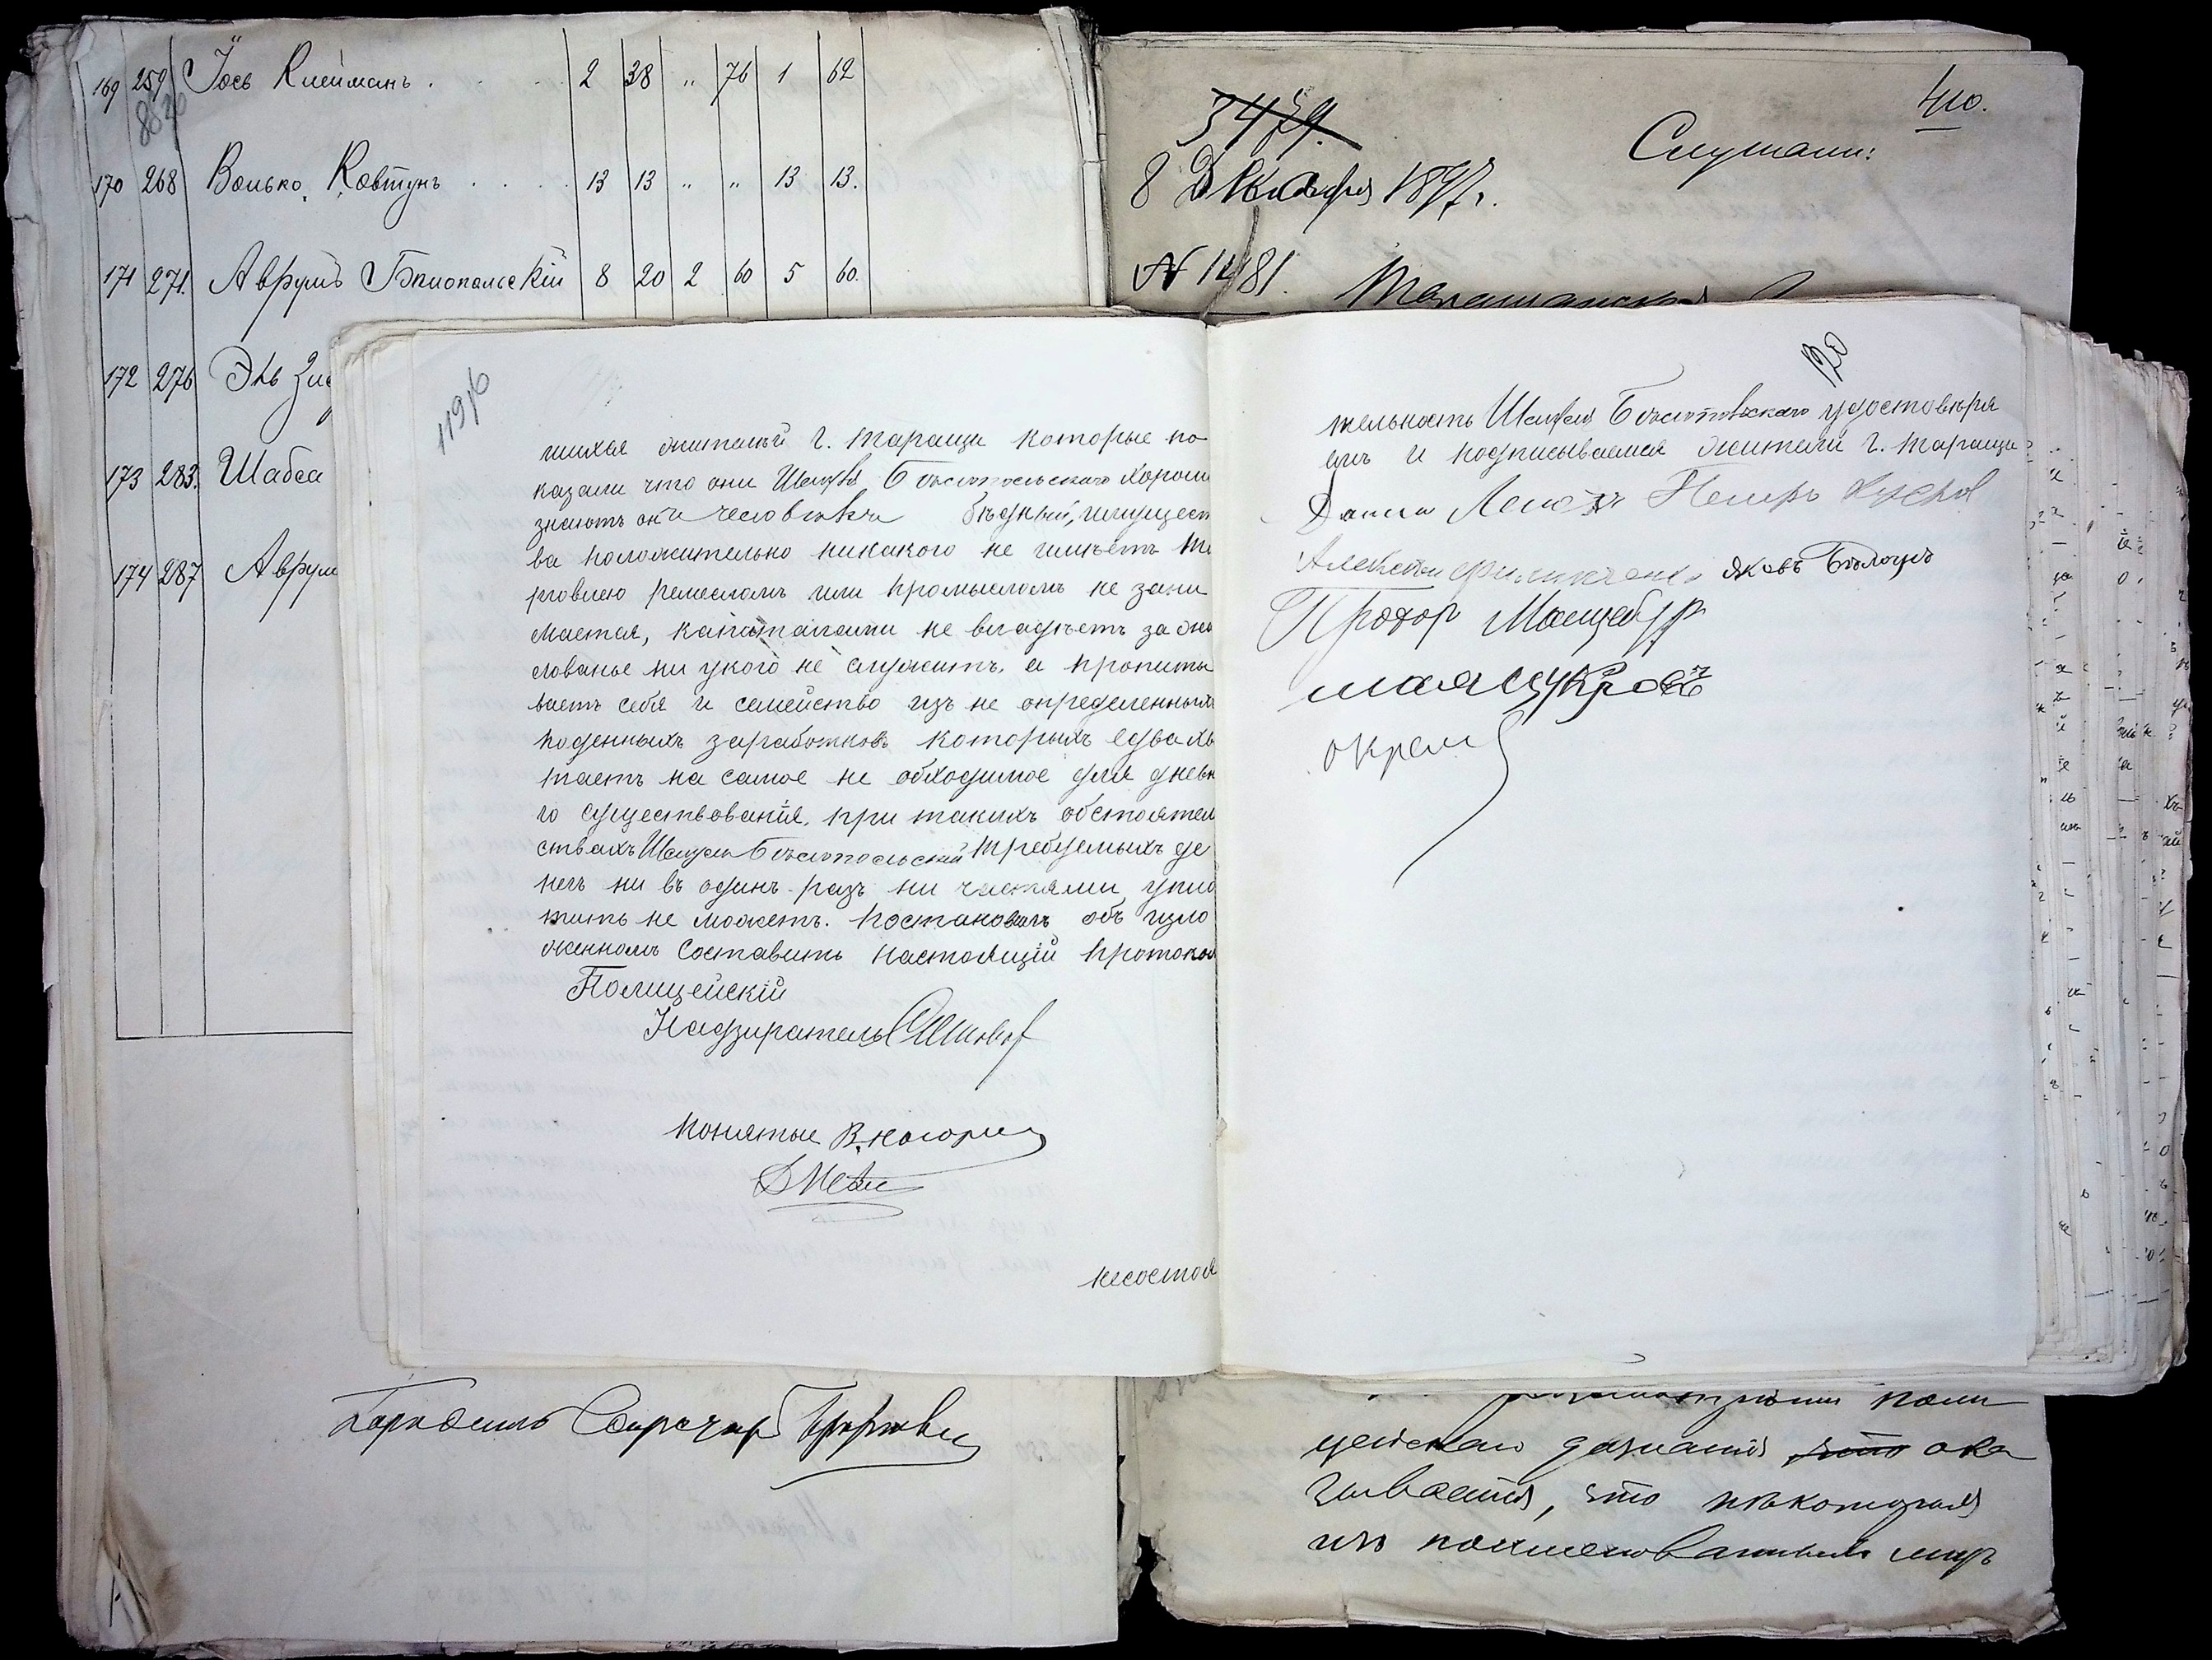 169 259 Іось Клейманъ . 2 38 " 76 1 62
170 268 Волько Ковтунъ . . . . 13 13 " " 13 13.
171 271. Аврумъ Бѣлопольскій 8 20 2 60 5 60.
172 276 Эль
173 283. Шабса
174 287 Аврум
410.
Слушали:
8 Декабря 1897 г.
N 1481.
119об
шихся жителей г. Таращи которые по
казали что они Шмуля Бѣлопольскаго хорошо
знаютъ онъ человѣкъ бѣдный, имущест
ва положительно никакого не имѣетъ То
рговлею ремесломъ или промысломъ не зани
мается, капиталами не владѣетъ за жа
лованье ни укого не служитъ, а пропиты
ваетъ себя и семейство изъ не определенныхъ
поденныхъ заработковъ которыхъ едва хв
таетъ на самое не обходимое для дневн
го существованія, при такихъ обстоятел
ствахъ Шмуль Бѣлопольскій требуемыхъ де
негъ ни въ одинъ разъ ни частями упла
тить не можетъ. Постановилъ объ изло
женномъ составить настоящій протокол
Полицейскій
Надзиратель
Понятые В.
несостоя
120
тельность Шмуля Бѣлопольскаго удостовѣря
емъ и подписываемся жители г. Таращи
Петръ
Алексѣй яковъ
Прохор
цейскаго дознанія что ока
зывается, что нѣкоторыя
изъ поименованныхъ лицъ